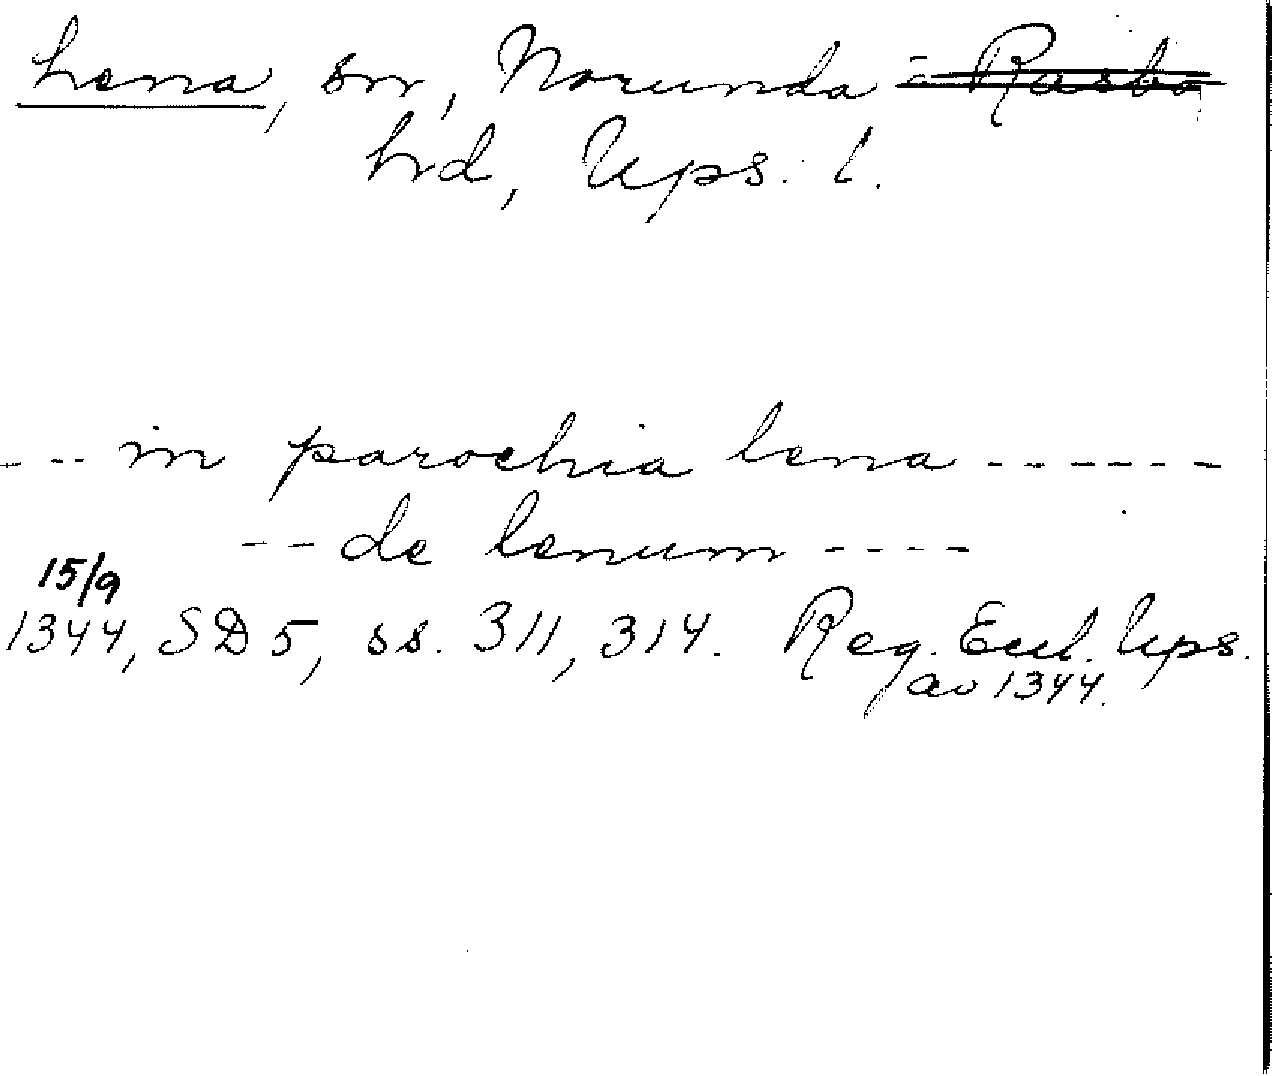 Lena, sn, Norunda o Rasbo
hd, Ups. l.
--- in parochia lena ------
-- de lenum ----
15/9
1344, SD 5, ss. 311, 314. Reg. Eccl. Ups.
av 1344.